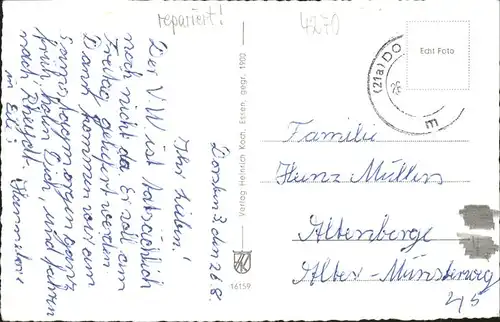 repariert!
4270
Dorsten 3, den 26.8.
Ihr Lieben!
Der V.W ist tatsächlich
noch nicht da. Er soll am
Freitag geliefert werden
Dann kommen wir am
Samstagmorgen ganz
früh, holen Dich, und fahren
nach Rheydt. Hannelore
in Eile!
Verlag Heinrich Koch, Essen, gegr. 1902
16159
(21a) DO
Echt Foto
Familie
Heinz Müller
Altenberge
Alter-Münsterweg
45